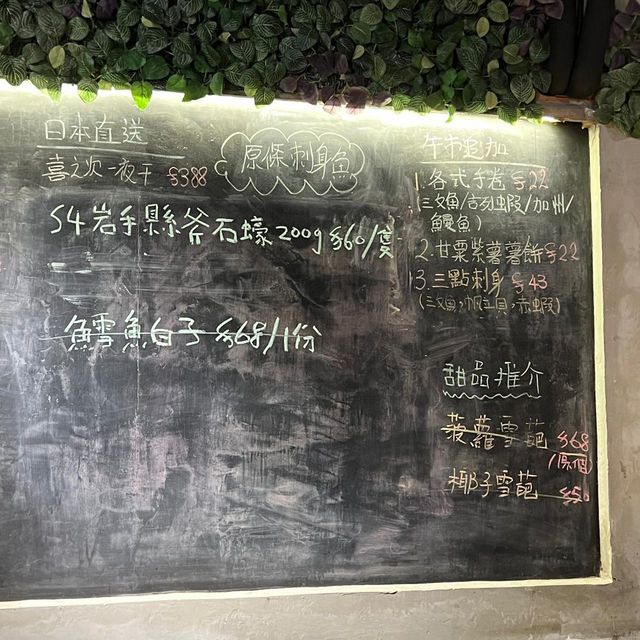 日本直送
喜之次一夜干 $388
原條刺身魚
S4岩手縣斧石蠔200g $60/隻
鱈魚白子 $68/1份
午市追加
1. 各式手卷 $22
(三文魚/吉列蝦/加州/
鰻魚)
2. 甘粟紫薯薯餅 $22
3. 三點刺身 $43
(三文魚,帆立貝,赤蝦)
甜品推介
菠蘿雪葩 $68
/(原個)
椰子雪葩 $50